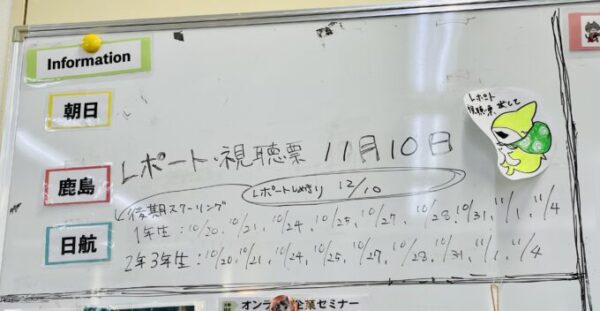 Information
朝日
鹿島
日航
レポート
視聴票 出して
レポート・視聴票 11月10日
レポートしめきり 12/10
後期スクーリング
1年生:10/20, 10/21, 10/24, 10/25, 10/27, 10/28, 10/31, 11/1, 11/4
2年3年生:10/20, 10/21, 10/24, 10/25, 10/27, 10/28, 10/31, 11/1, 11/4
オンラ
企業セミナー